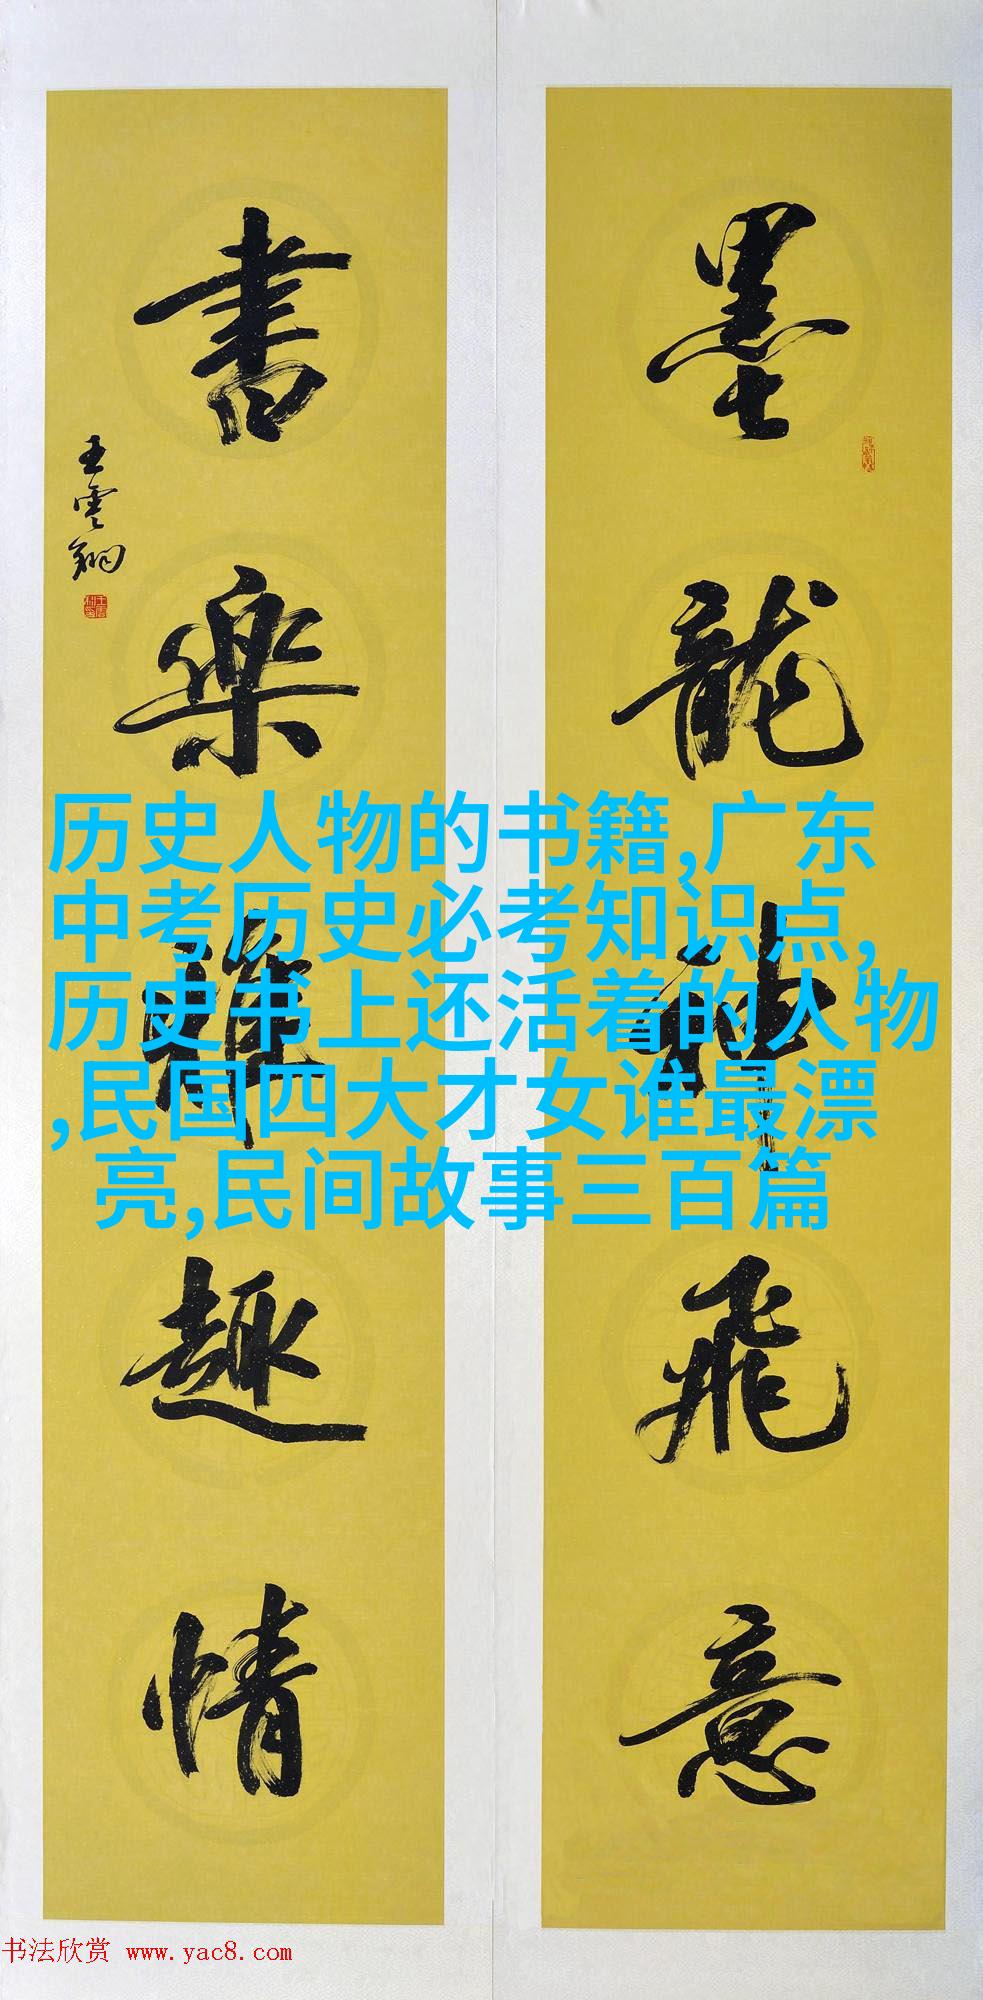 墨龍神飛意
書樂雅趣情
王雲翔
历史人物的书籍,广东
中考历史必考知识点,
历史书上还活着的人物
,民国四大才女谁最漂
亮,民间故事三百篇
书法欣赏 www.yac8.com